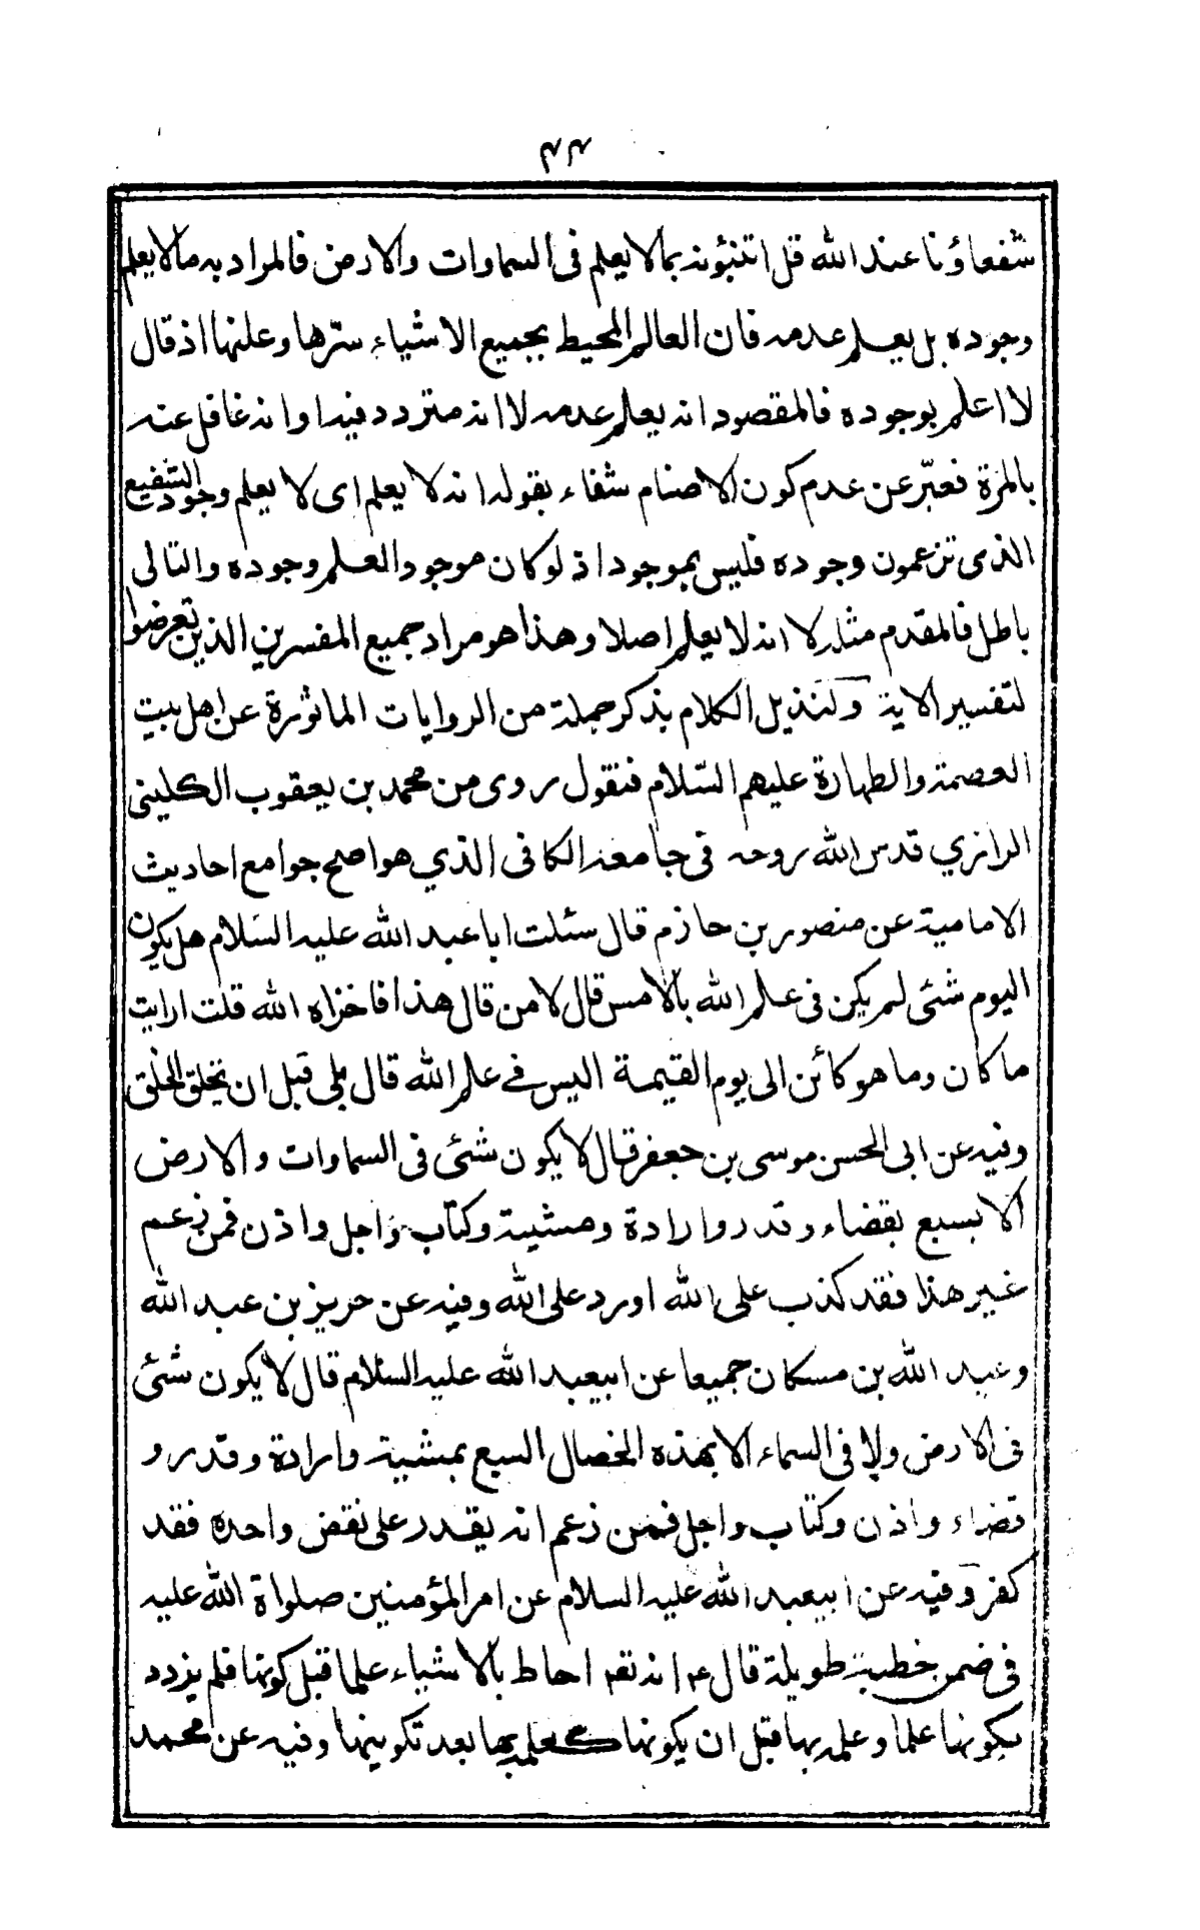 ٤٤
شفعاؤنا عند الله قل اتنبؤنه بما لا يعلم فى السماوات والارض فالمراد به مالا يعلم
وجوده بل يعلم عدمه فان العالم المحيط بجميع الاشياء سرّها وعلنها اذ قال
لا اعلم بوجوده فالمقصود انه يعلم عدمه لا انه متردد فيه او انه غافل عنه
بالمرّة فعبّر عن عدم كون الاصنام شفعاء بقوله انه لا يعلم اى لا يعلم وجود الشفيع
الذى تزعمون وجوده فليس بموجود اذ لو كان موجودا لعلم وجوده والتالى
باطل فالمقدم مثله لا انه لا يعلم اصلا وهذا هو مراد جميع المفسرين الذين تعرضوا
لتفسير الاية ولنذيل الكلام بذكر جملة من الروايات الماثورة عن اهل بيت
العصمة والطهارة عليهم السّلام فنقول روى من محمد بن يعقوب الكلينى
الرازي قدس الله روحه فى جامعه الكافى الذي هو اصح جوامع احاديث
الامامية عن منصور بن حازم قال سئلت ابا عبد الله عليه السّلام هل يكون
اليوم شئى لم يكن فى علم الله بالامس قال لا من قال هذا فاخزاه الله قلت ارايت
ما كان وما هو كائن الى يوم القيمة اليس فے علم الله قال بلى قبل ان يخلق الخلق
وفيه عن ابى الحسن موسى بن جعفر قال لا يكون شئى فى السماوات والارض
الا بسبع بقضاء وقدر وارادة ومشية وكتاب واجل واذن فمن زعم
غير هذا فقد كذب على الله او رد على الله وفيه عن حريز بن عبد الله
وعبد الله بن مسكان جميعا عن ابيعبد الله عليه السلام قال لا يكون شئى
فى الارض ولا فى السماء الا بهذه الخصال السبع بمشية وارادة وقدر و
قضاء واذن وكتاب واجل فمن زعم انه يقدر على نقض واحده فقد
كفر وفيه عن ابيعبد الله عليه السلام عن امر المؤمنين صلواة الله عليه
فى ضمن خطبة طويلة قال ع انه تعه احاط بالاشياء علما قبل كونها فلم يزدد
بكونها علما وعلمه بها قبل ان يكونها كعلمه بها بعد تكوينها وفيه عن محمد